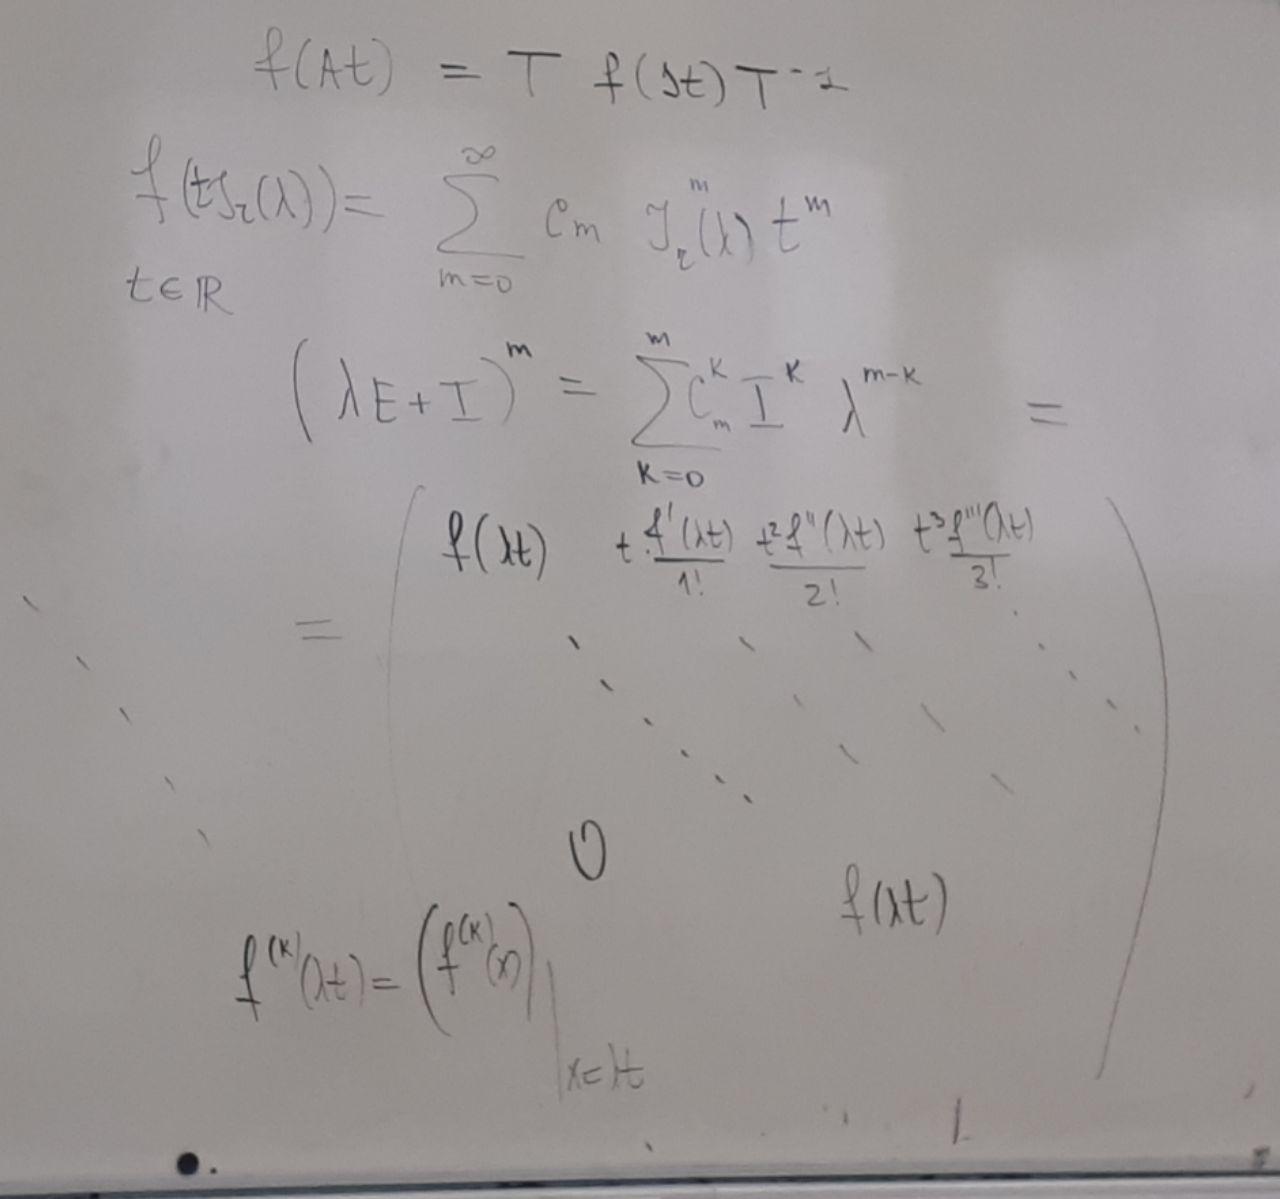 f(At) = T f(Jt) T⁻¹
f(tJ_r(λ)) = ∑_{m=0}^{∞} c_m J_r^m(λ) t^m
t ∈ ℝ
(λE + I)^m = ∑_{K=0}^{m} C_m^K I^K λ^{m-K} =
= ( f(λt) t·f'(λt)/1! t²f''(λt)/2! t³f'''(λt)/3!
0
f(λt) )
f^{(K)}(λt) = (f^{(K)}(x))|_{x=λt}